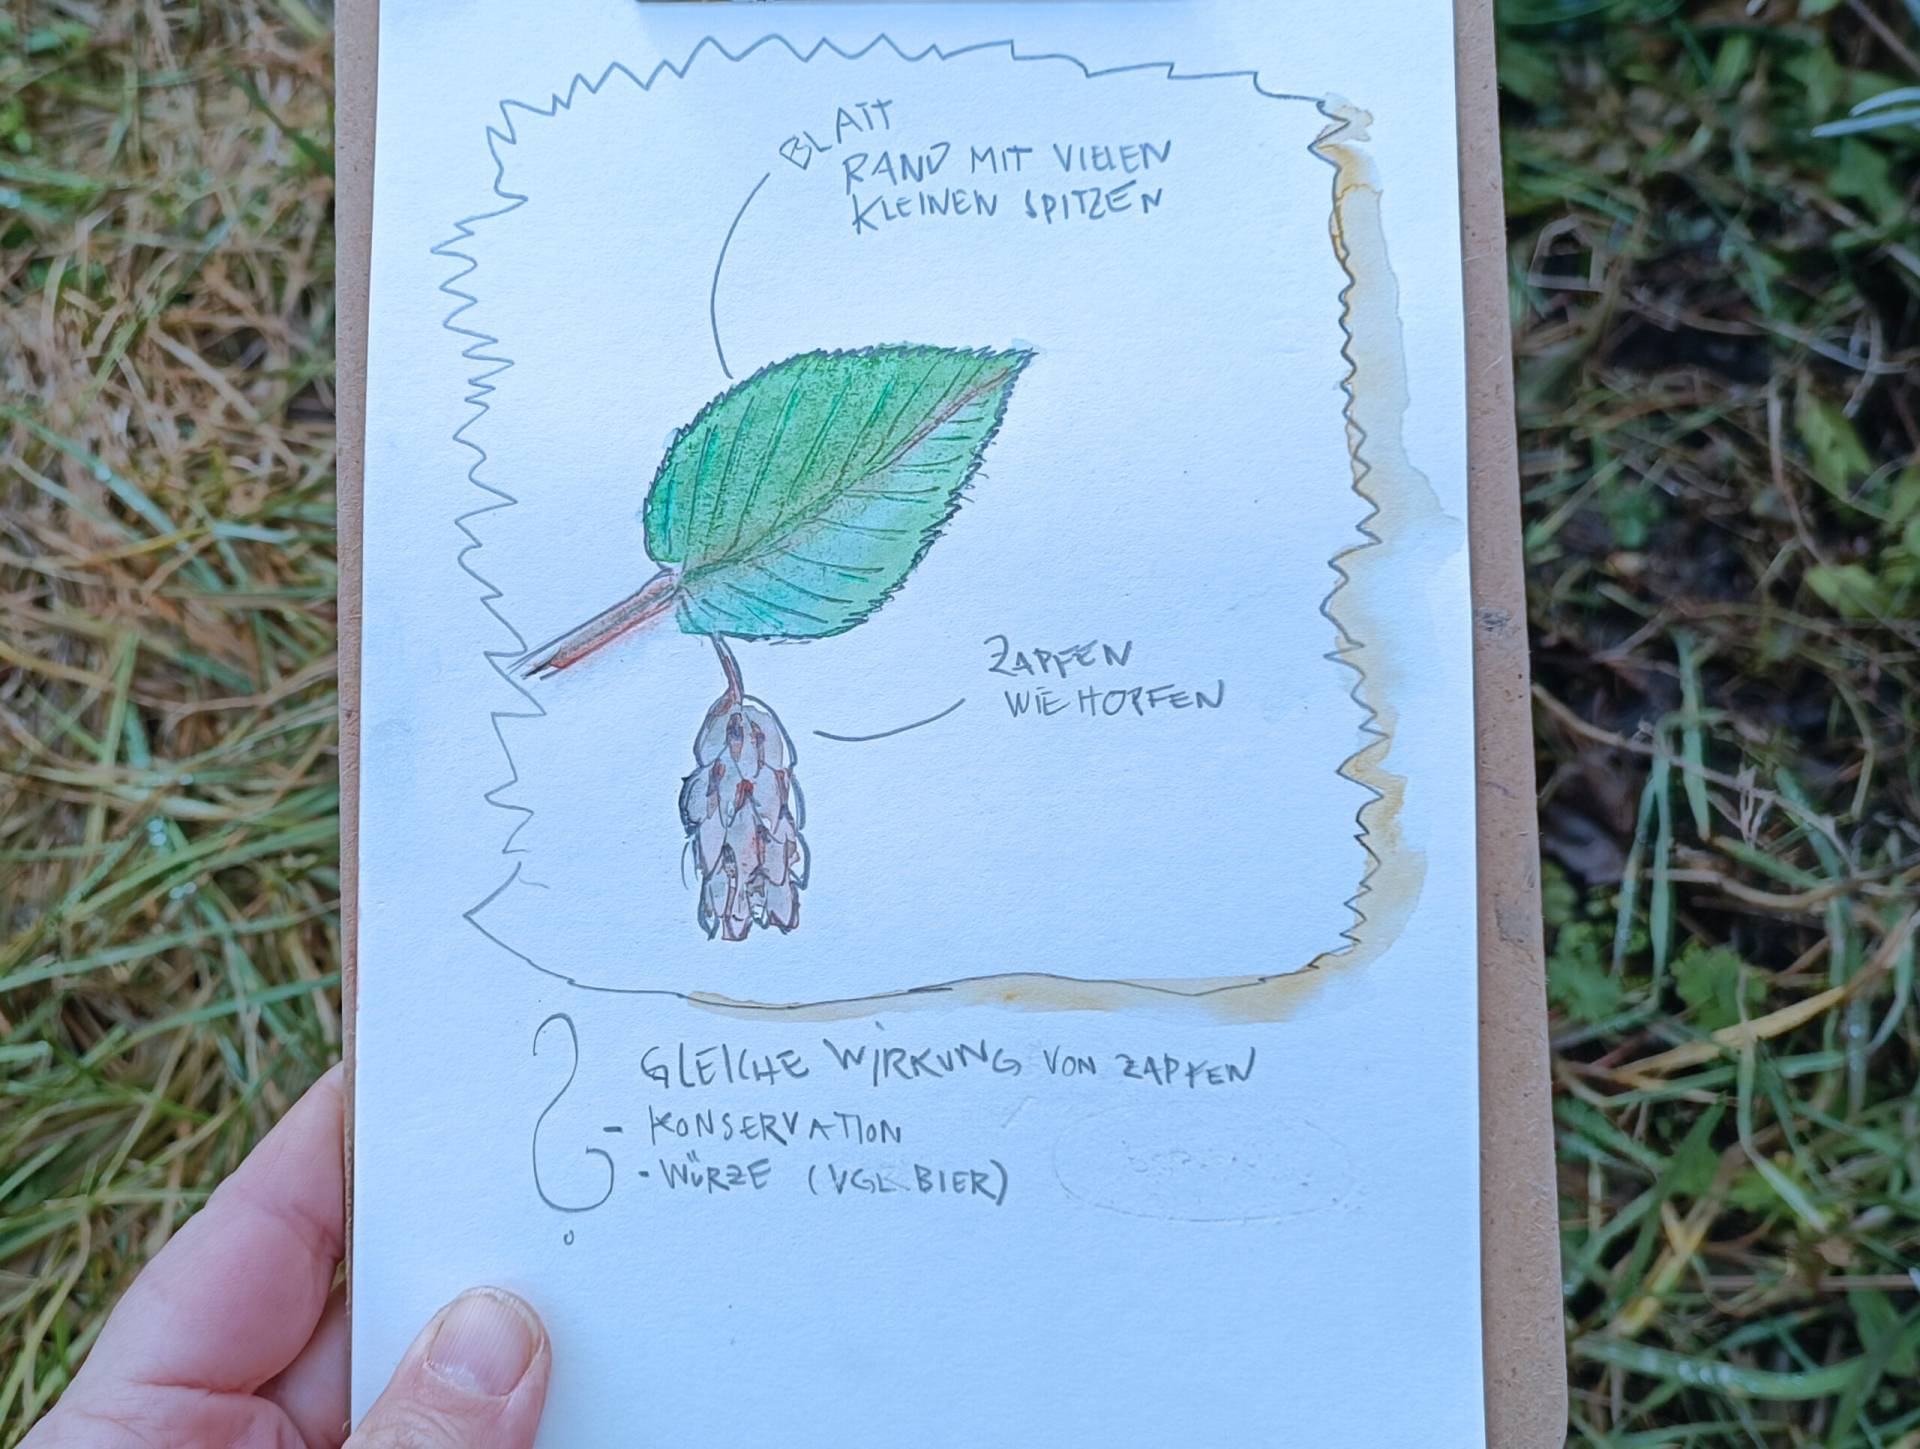 BLATT
RAND MIT VIELEN
KLEINEN SPITZEN
ZAPFEN
WIE HOPFEN
GLEICHE WIRKUNG VON ZAPFEN
- KONSERVATION
- WÜRZE (VGL. BIER)